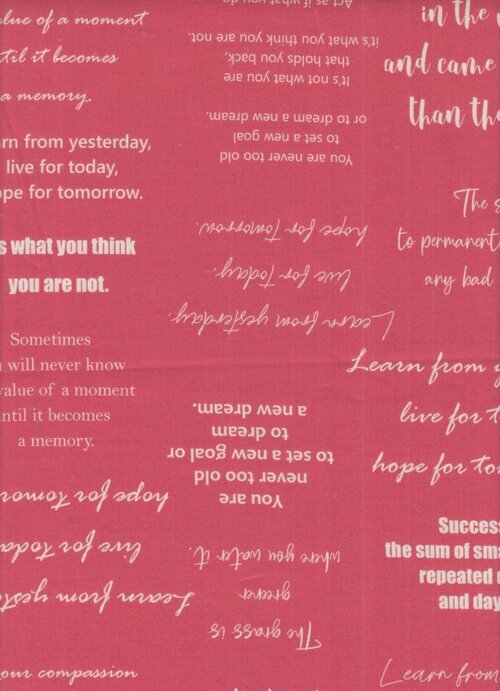 alue of a moment
til it becomes
a memory.
rn from yesterday,
live for today,
ope for tomorrow.
s what you think
you are not.
Sometimes
will never know
value of a moment
ntil it becomes
a memory.
Learn from yeste
live for toda
hope for tomor
our compassion
Act as if what you do
It's not what you are
that holds you back,
it's what you think you are not.
You are never too old
to set a new goal
or to dream a new dream.
Learn from yesterday.
live for today.
hope for tomorrow.
You are
never too old
to set a new goal or
to dream
a new dream.
The grass is
greener
where you water it.
in the
and came
than th
The s
to permanent
any bad
Learn from y
live for t
hope for to
Success
the sum of sma
repeated
and day
Learn from